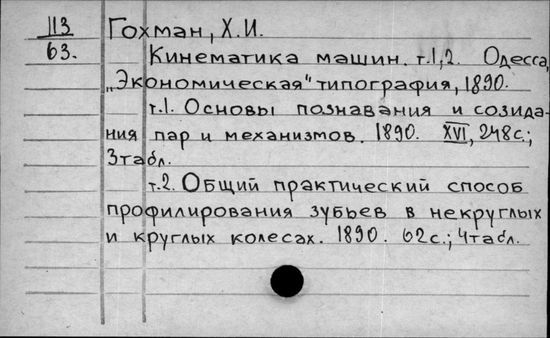 113
63.
Гохман, Х.И.
Кинематика машин. т.1,2. Одесса,
„Экономическая" типография, 1890.
т.1. Основы познавания и созида-
ния пар и механизмов. 1890. XVI, 248с.;
3табл.
т.2. Общий практический способ
профилирования зубьев в некруглых
и круглых колесах. 1890. 62с.; 4табл.